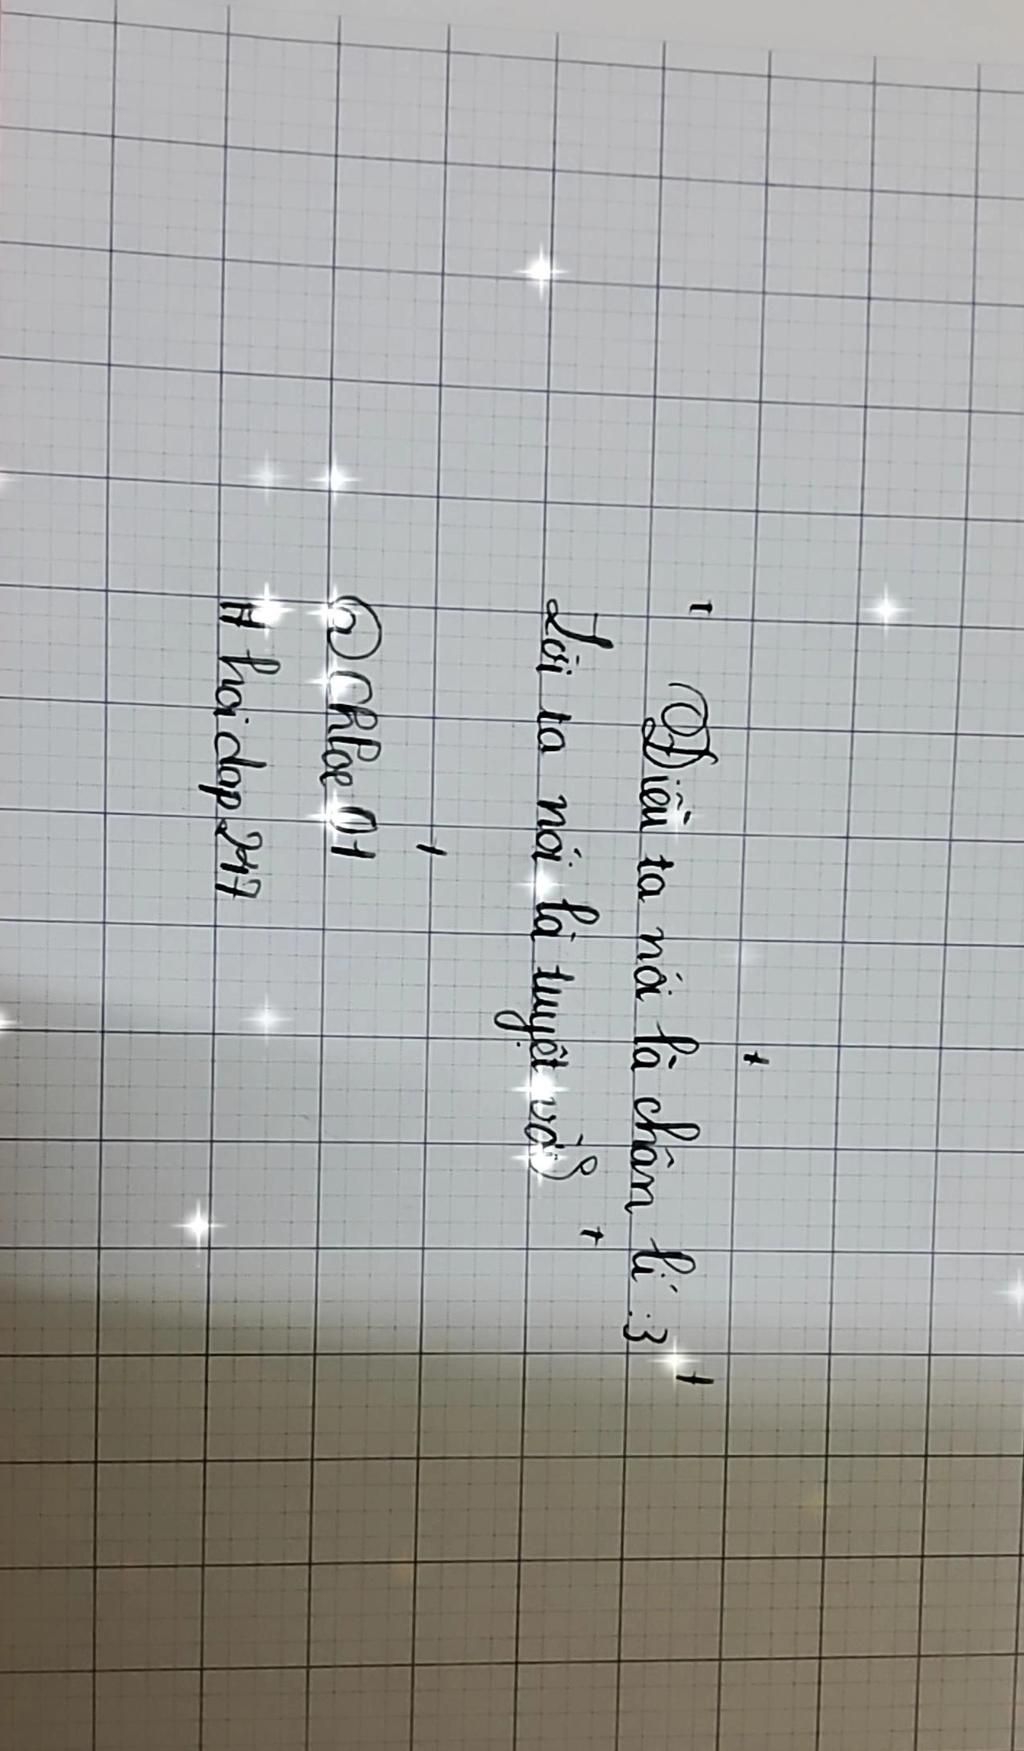 Điều ta nói là chân lí :3
Lời ta nói là tuyệt vời
@Chloe 01
# hoidap247